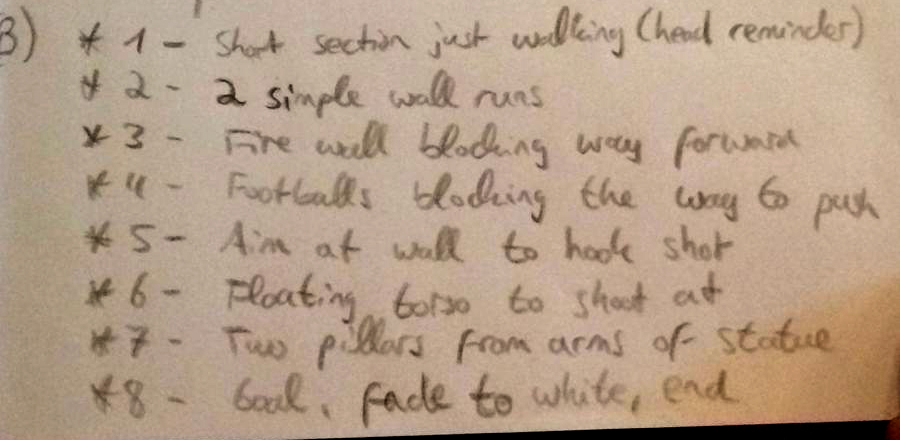 B) * 1 - Short section just walking (head reminder)
* 2 - 2 simple wall runs
* 3 - Fire wall blocking way forward
* 4 - Footballs blocking the way to push
* 5 - Aim at wall to hook shot
* 6 - Floating torso to shoot at
* 7 - Two pillars from arms of statue
* 8 - Goal, fade to white, end